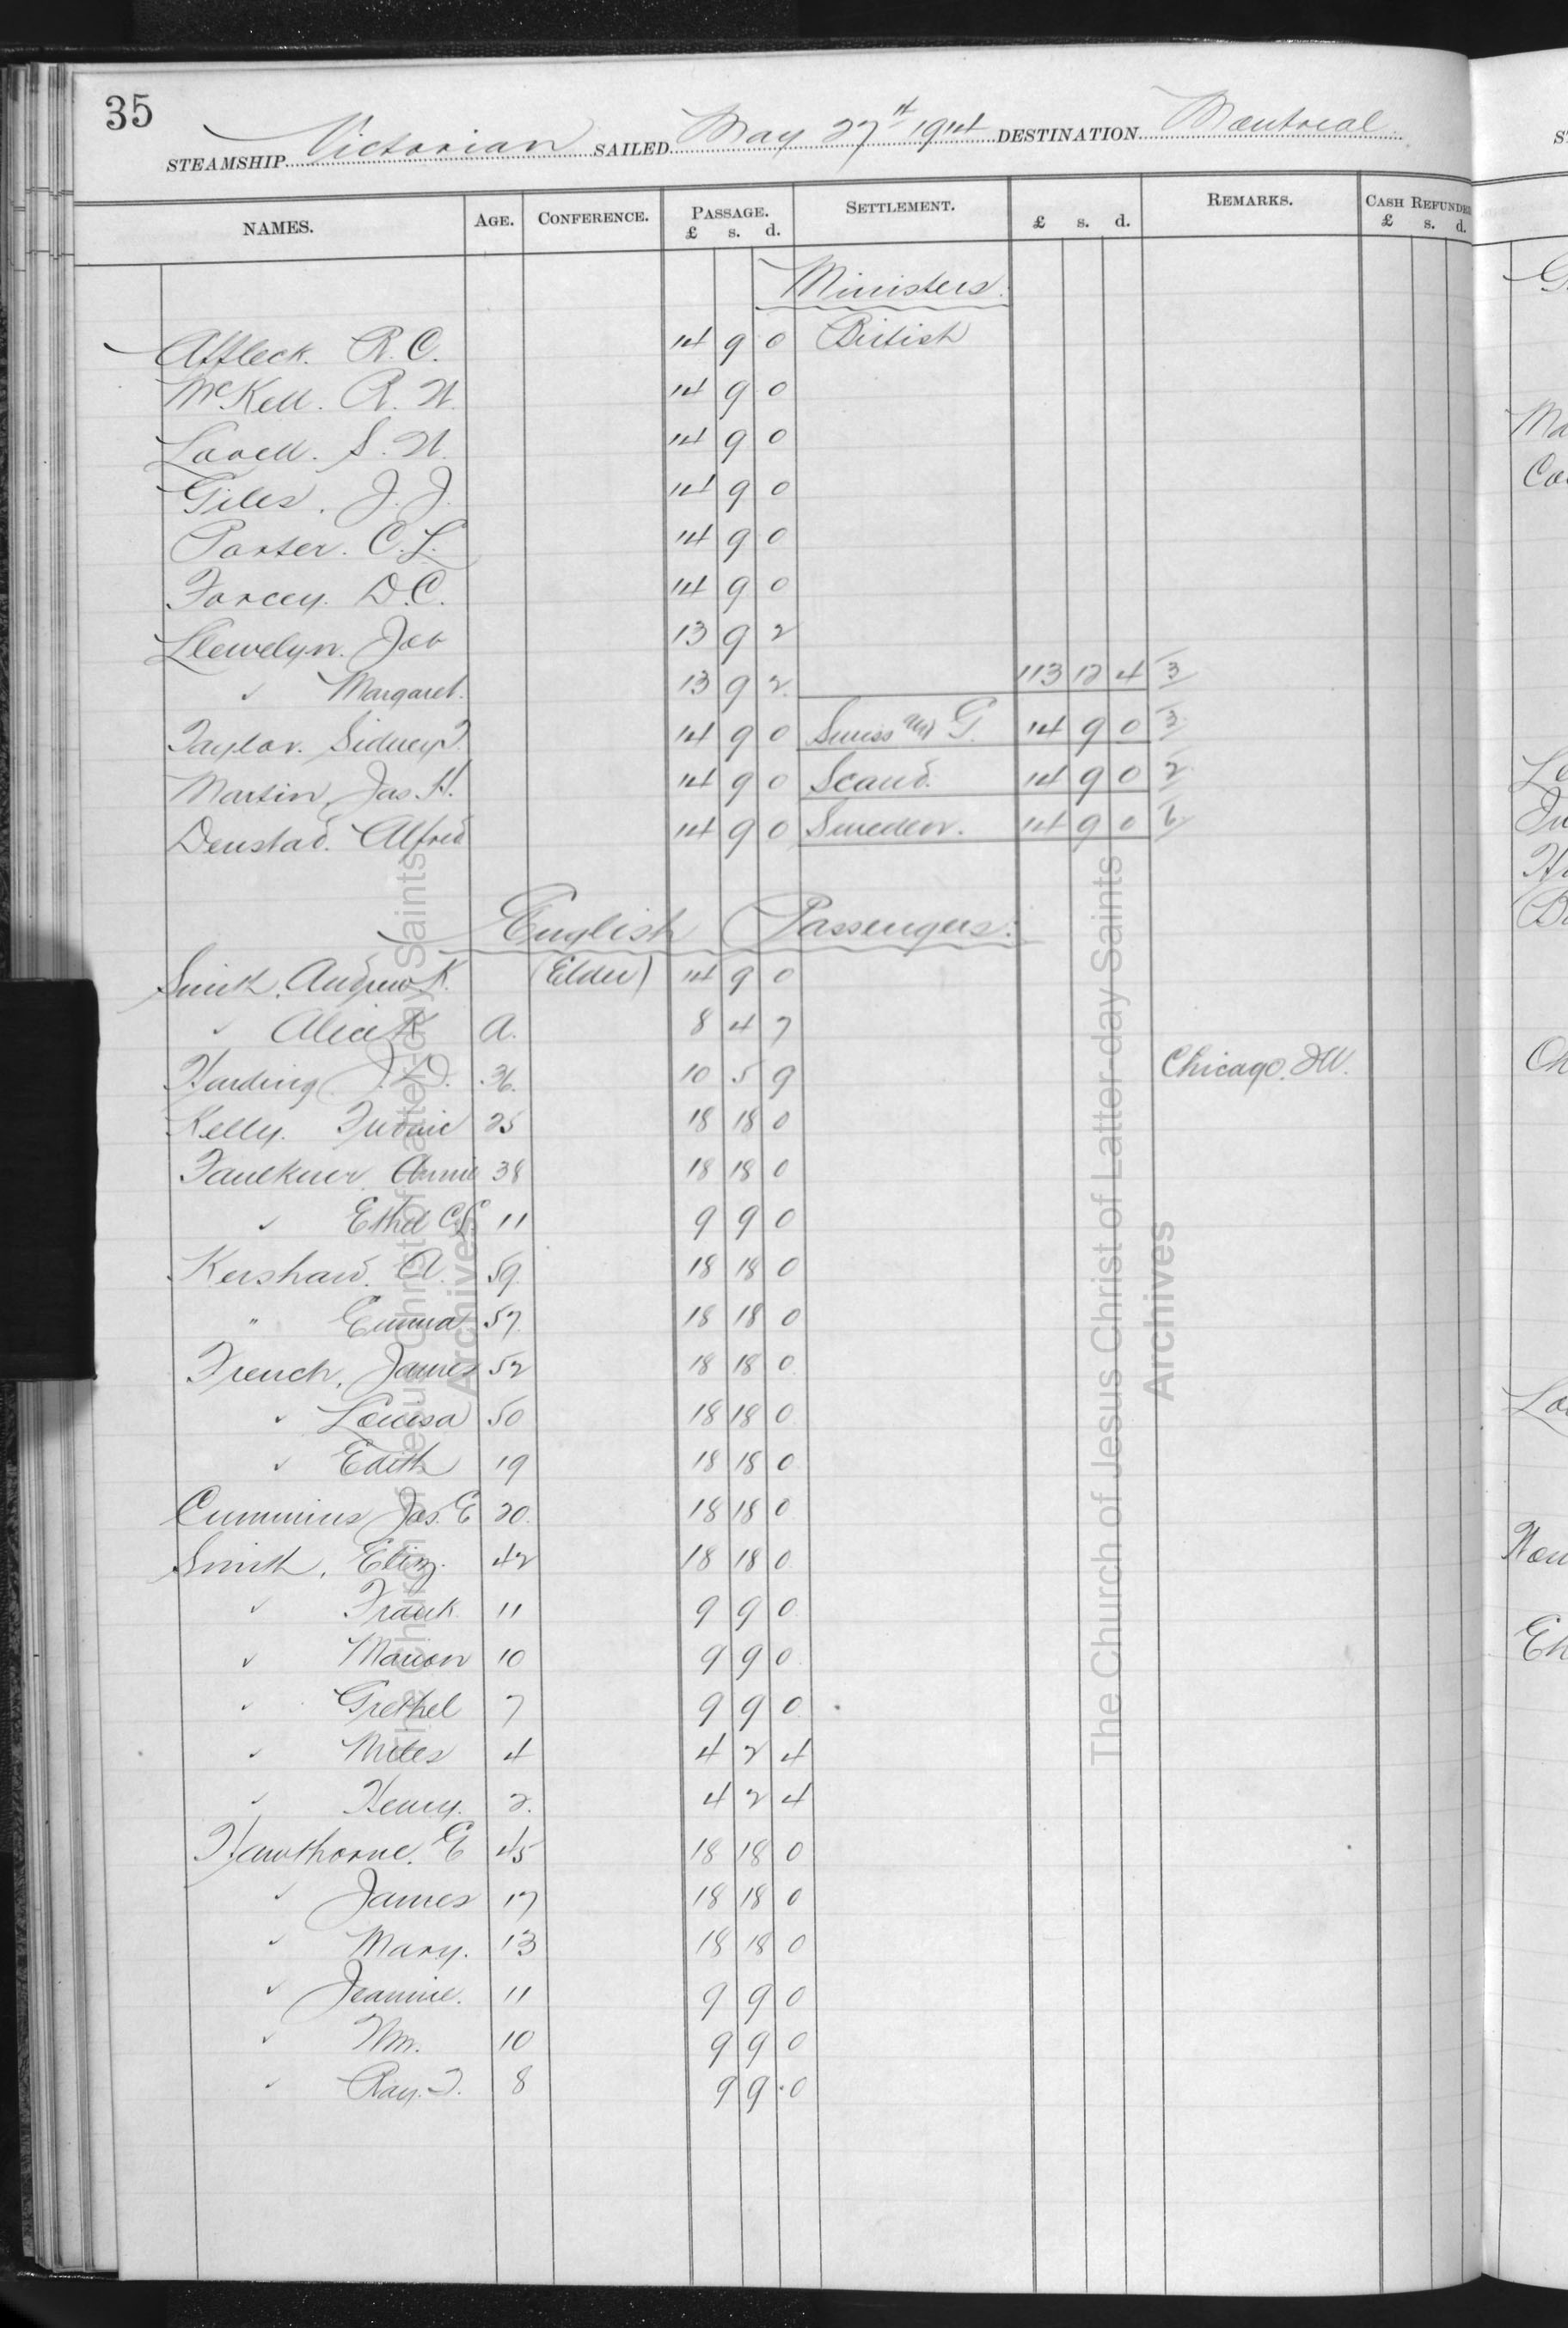 35
STEAMSHIP Victorian SAILED May 27th 1914 DESTINATION Montreal
NAMES. AGE. CONFERENCE. PASSAGE. £ s. d. SETTLEMENT. £ s. d. REMARKS. CASH REFUNDE £ s. d.
Ministers.
Affleck. R. C. 14 9 0 British
McKell. R. H. 14 9 0
Lovell. S. H. 14 9 0
Giles. J. J. 14 9 0
Porter. C. L. 14 9 0
Forcey. D. C. 14 9 0
Llewelyn. Job 13 9 2
" Margaret. 13 9 2 113 12 4 3
Taylor. Sidney T. 14 9 0 Swiss and G. 14 9 0 3
Martin, Jas. H. 14 9 0 Scand. 14 9 0 2
Denstad. Alfred 14 9 0 Sweden. 14 9 0
English Passengers.
Smith. Andrew K. (Elder) 14 9 0
" Alice K A. 8 4 7
Harding J. D. 36. 10 5 9 Chicago. Ill.
Kelly. 25 18 18 0
Faulkner. Annie 38 18 18 0
" Ethel C. L. 11 9 9 0
Kershaw. A. 59. 18 18 0
" Emma 57. 18 18 0
French, James 52 18 18 0
" Louisa 50 18 18 0
" Edith 19 18 18 0
Cummins Jas. E 20. 18 18 0
Smith, Eliz. 42 18 18 0
" Frank 11 9 9 0
" Marion 10 9 9 0
" Grethel 7 9 9 0
" Miles 4 4 2 4
" Henry. 2. 4 2 4
Hawthorne. E 45 18 18 0
" James 17 18 18 0
" Mary. 13 18 18 0
" Jeannie. 11 9 9 0
" Wm. 10 9 9 0
" Ray. T. 8 9 9 0
The Church of Jesus Christ of Latter-day Saints
Archives
The Church of Jesus Christ of Latter-day Saints
Archives